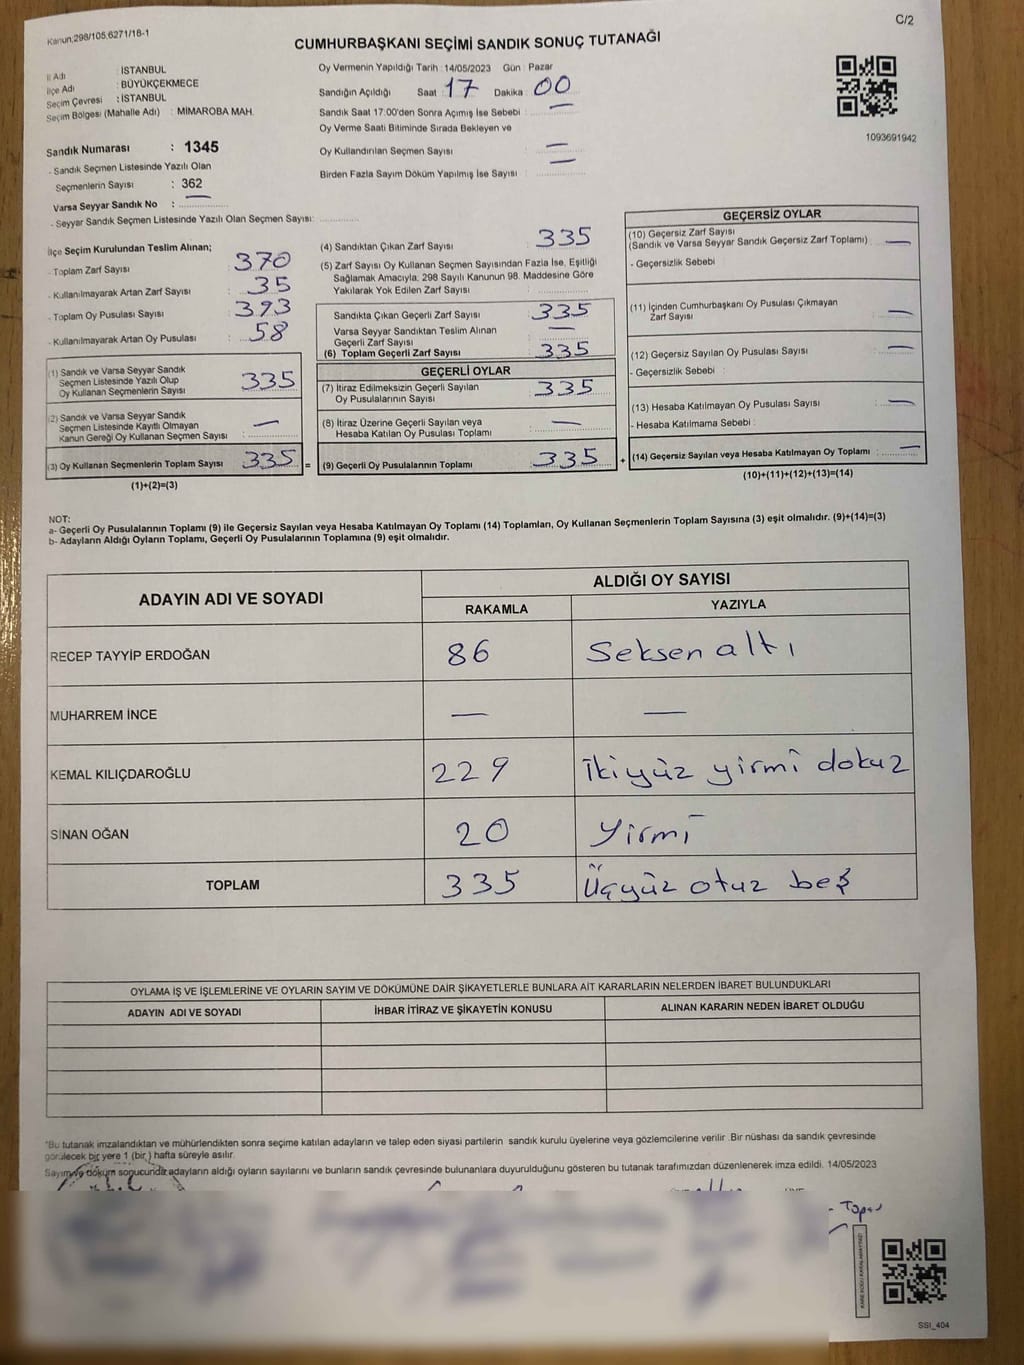 Kanun;298/105,6271/18-1
C/2
CUMHURBAŞKANI SEÇİMİ SANDIK SONUÇ TUTANAĞI
İl Adı : İSTANBUL
İlçe Adı : BÜYÜKÇEKMECE
Seçim Çevresi : İSTANBUL
Seçim Bölgesi (Mahalle Adı) : MİMAROBA MAH.
Oy Vermenin Yapıldığı Tarih : 14/05/2023 Gün : Pazar
Sandığın Açıldığı Saat : 17 Dakika : 00
Sandık Saat 17:00'den Sonra Açımış İse Sebebi : —
Oy Verme Saati Bitiminde Sırada Bekleyen ve
Oy Kullandırılan Seçmen Sayısı : —
Birden Fazla Sayım Döküm Yapılmış İse Sayısı : —
1093691942
Sandık Numarası : 1345
- Sandık Seçmen Listesinde Yazılı Olan
Seçmenlerin Sayısı : 362
Varsa Seyyar Sandık No : —
- Seyyar Sandık Seçmen Listesinde Yazılı Olan Seçmen Sayısı:
İlçe Seçim Kurulundan Teslim Alınan;
- Toplam Zarf Sayısı : 370
- Kullanılmayarak Artan Zarf Sayısı : 35
- Toplam Oy Pusulası Sayısı : 393
- Kullanılmayarak Artan Oy Pusulası : 58
(1) Sandık ve Varsa Seyyar Sandık
Seçmen Listesinde Yazılı Olup
Oy Kullanan Seçmenlerin Sayısı : 335
(2) Sandık ve Varsa Seyyar Sandık
Seçmen Listesinde Kayıtlı Olmayan
Kanun Gereği Oy Kullanan Seçmen Sayısı : —
(3) Oy Kullanan Seçmenlerin Toplam Sayısı : 335 =
(1)+(2)=(3)
(4) Sandıktan Çıkan Zarf Sayısı : 335
(5) Zarf Sayısı Oy Kullanan Seçmen Sayısından Fazla İse, Eşitliği
Sağlamak Amacıyla, 298 Sayılı Kanunun 98. Maddesine Göre
Yakılarak Yok Edilen Zarf Sayısı :
Sandıkta Çıkan Geçerli Zarf Sayısı : 335
Varsa Seyyar Sandıktan Teslim Alınan
Geçerli Zarf Sayısı : —
(6) Toplam Geçerli Zarf Sayısı : 335
GEÇERLİ OYLAR
(7) İtiraz Edilmeksizin Geçerli Sayılan
Oy Pusulalarının Sayısı : 335
(8) İtiraz Üzerine Geçerli Sayılan veya
Hesaba Katılan Oy Pusulası Toplamı : —
(9) Geçerli Oy Pusulalarının Toplamı : 335 +
GEÇERSİZ OYLAR
(10) Geçersiz Zarf Sayısı
(Sandık ve Varsa Seyyar Sandık Geçersiz Zarf Toplamı) : —
- Geçersizlik Sebebi :
(11) İçinden Cumhurbaşkanı Oy Pusulası Çıkmayan
Zarf Sayısı : —
(12) Geçersiz Sayılan Oy Pusulası Sayısı : —
- Geçersizlik Sebebi :
(13) Hesaba Katılmayan Oy Pusulası Sayısı : —
- Hesaba Katılmama Sebebi :
(14) Geçersiz Sayılan veya Hesaba Katılmayan Oy Toplamı : —
(10)+(11)+(12)+(13)=(14)
NOT:
a- Geçerli Oy Pusulalarının Toplamı (9) ile Geçersiz Sayılan veya Hesaba Katılmayan Oy Toplamı (14) Toplamları, Oy Kullanan Seçmenlerin Toplam Sayısına (3) eşit olmalıdır. (9)+(14)=(3)
b- Adayların Aldığı Oyların Toplamı, Geçerli Oy Pusulalarının Toplamına (9) eşit olmalıdır.
ADAYIN ADI VE SOYADI ALDIĞI OY SAYISI
RAKAMLA YAZIYLA
RECEP TAYYİP ERDOĞAN 86 Seksen altı
MUHARREM İNCE — —
KEMAL KILIÇDAROĞLU 229 İkiyüz yirmi dokuz
SİNAN OĞAN 20 Yirmi
TOPLAM 335 Üçyüz otuz beş
OYLAMA İŞ VE İŞLEMLERİNE VE OYLARIN SAYIM VE DÖKÜMÜNE DAİR ŞİKAYETLERLE BUNLARA AİT KARARLARIN NELERDEN İBARET BULUNDUKLARI
ADAYIN ADI VE SOYADI İHBAR İTİRAZ VE ŞİKAYETİN KONUSU ALINAN KARARIN NEDEN İBARET OLDUĞU
*Bu tutanak imzalandıktan ve mühürlendikten sonra seçime katılan adayların ve talep eden siyasi partilerin sandık kurulu üyelerine veya gözlemcilerine verilir .Bir nüshası da sandık çevresinde
görülecek bir yere 1 (bir ) hafta süreyle asılır.
Sayım ve döküm sonucunda adayların aldığı oyların sayılarını ve bunların sandık çevresinde bulunanlara duyurulduğunu gösteren bu tutanak tarafımızdan düzenlenerek imza edildi. 14/05/2023
KARE KODU KARALAMAYINIZ!
SSI_404